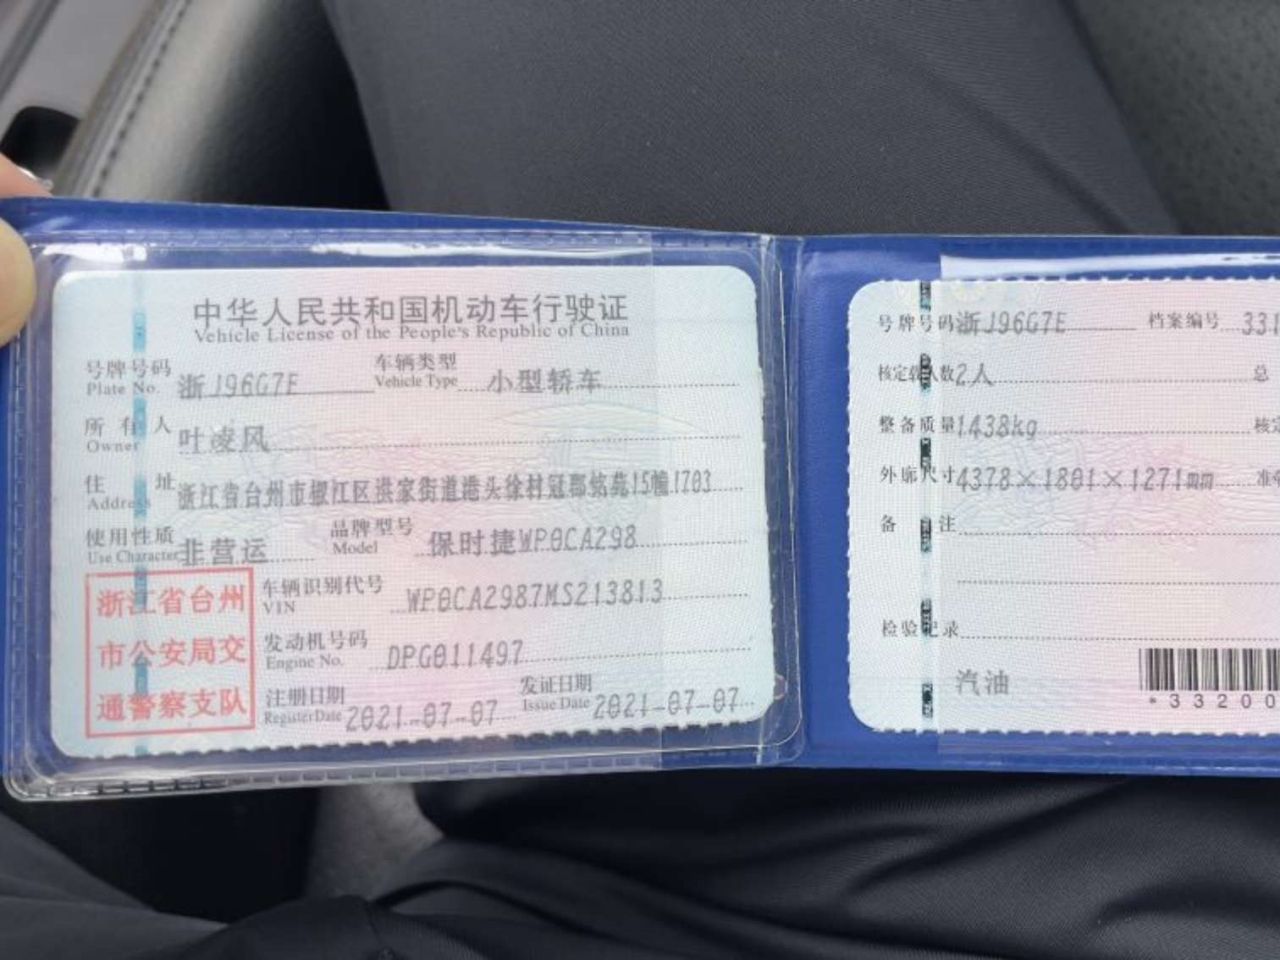 中华人民共和国机动车行驶证
Vehicle License of the People's Republic of China
号牌号码 浙J96G7E 车辆类型 小型轿车
Plate No. Vehicle Type
所有人 叶凌风
Owner
住址 浙江省台州市椒江区洪家街道港头徐村冠郡铭苑15幢1703
Address
使用性质 非营运 品牌型号 保时捷WP0CA298
Use Character Model
浙江省台州
市公安局交
通警察支队
车辆识别代号 WP0CA2987MS213813
VIN
发动机号码 DPG011497
Engine No.
注册日期 2021-07-07 发证日期 2021-07-07
Register Date Issue Date
号牌号码 浙J96G7E 档案编号 331
核定载人数 2人 总
整备质量 1438kg 核定
外廓尺寸 4378×1801×1271mm 准牵
备注
检验记录
汽油
*33200